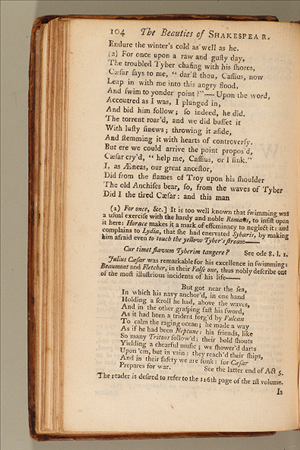 104 The Beauties of SHAKESPEAR.
Endure the winter's cold as well as he.
(2) For once upon a raw and gusty day,
The troubled Tyber chafing with his shores,
Cæsar says to me, "dar'st thou, Cassius, now
Leap in with me into this angry flood,
And swim to yonder point?"—Upon the word,
Accoutred as I was, I plunged in,
And bid him follow; so indeed, he did.
The torrent roar'd, and we did buffet it
With lusty sinews; throwing it aside,
And stemming it with hearts of controversy.
But ere we could arrive the point propos'd,
Cæsar cry'd, "help me, Cassius, or I sink."
I, as Æneas, our great ancestor,
Did from the flames of Troy upon his shoulder
The old Anchises bear, so, from the waves of Tyber
Did I the tired Cæsar: and this man
(2) For once, &c.] It is too well known that swimming was
a usual exercise with the hardy and noble Romans, to insist upon
it here: Horace makes it a mark of effeminacy to neglect it: and
complains to Lydia, that she had enervated Sybaris, by making
him afraid even to touch the yellow Tyber's stream—
Cur timet flavum Tyberim tangere? See ode 8. l. 1.
Julius Cæsar was remarkable for his excellence in swimming:
Beaumont and Fletcher, in their False one, thus nobly describe out
of the most illustrious incidents of his life—
But got near the sea,
In which his navy anchor'd, in one hand
Holding a scroll he had, above the waves,
And in the other grasping fast his sword,
As it had been a trident forg'd by Vulcan
To calm the raging ocean; he made a way
As if he had been Neptune: his friends, like
So many Tritons follow'd; their bold shouts
Yielding a chearful music; we shower'd darts
Upon 'em, but in vain: they reach'd their ships,
And in their safety we are sunk: for Cæsar
Prepares for war. See the latter end of Act 5.
The reader is desired to refer to the 116th page of the 1st volume.
Is